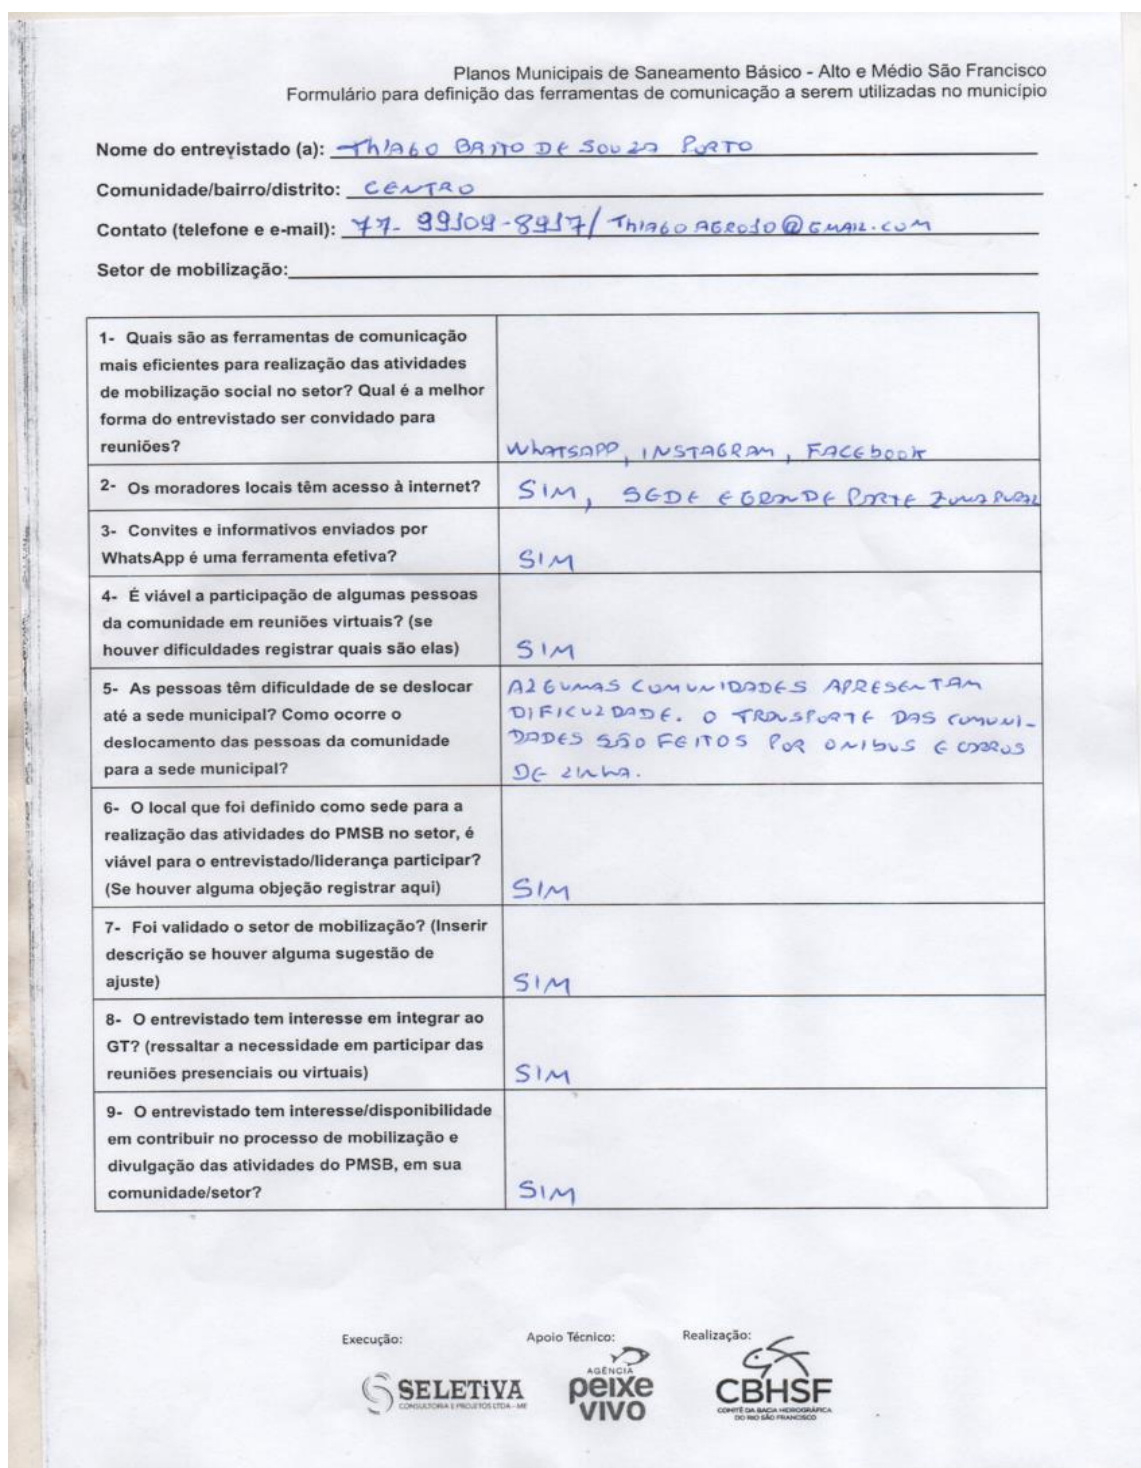 Planos Municipais de Saneamento Básico - Alto e Médio São Francisco
Formulário para definição das ferramentas de comunicação a serem utilizadas no município
Nome do entrevistado (a): THIAGO BRITO DE SOUZA PORTO
Comunidade/bairro/distrito: CENTRO
Contato (telefone e e-mail): 77- 99109-8917/ THIAGOAGRO10@GMAIL.COM
Setor de mobilização:
1- Quais são as ferramentas de comunicação
mais eficientes para realização das atividades
de mobilização social no setor? Qual é a melhor
forma do entrevistado ser convidado para
reuniões?
WHATSAPP, INSTAGRAM, FACEBOOK
2- Os moradores locais têm acesso à internet?
SIM, SEDE E GRANDE PARTE ZONA RURAL
3- Convites e informativos enviados por
WhatsApp é uma ferramenta efetiva?
SIM
4- É viável a participação de algumas pessoas
da comunidade em reuniões virtuais? (se
houver dificuldades registrar quais são elas)
SIM
5- As pessoas têm dificuldade de se deslocar
até a sede municipal? Como ocorre o
deslocamento das pessoas da comunidade
para a sede municipal?
ALGUMAS COMUNIDADES APRESENTAM
DIFICULDADE. O TRANSPORTE DAS COMUNI-
DADES SÃO FEITOS POR ONIBUS E CARROS
DE LINHA.
6- O local que foi definido como sede para a
realização das atividades do PMSB no setor, é
viável para o entrevistado/liderança participar?
(Se houver alguma objeção registrar aqui)
SIM
7- Foi validado o setor de mobilização? (Inserir
descrição se houver alguma sugestão de
ajuste)
SIM
8- O entrevistado tem interesse em integrar ao
GT? (ressaltar a necessidade em participar das
reuniões presenciais ou virtuais)
SIM
9- O entrevistado tem interesse/disponibilidade
em contribuir no processo de mobilização e
divulgação das atividades do PMSB, em sua
comunidade/setor?
SIM
Execução:
Apoio Técnico:
Realização:
SELETIVA
CONSULTORIA E PROJETOS LTDA - ME
AGÊNCIA
peixe
VIVO
CBHSF
COMITÊ DA BACIA HIDROGRÁFICA
DO RIO SÃO FRANCISCO